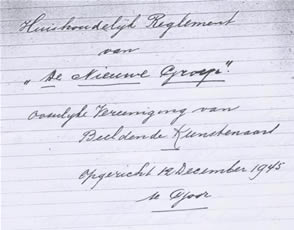 Huishoudelijk Reglement
van
„De Nieuwe Groep".
Vereeniging van
Beeldende Kunstenaars
opgericht 12 December 1945
te Goor